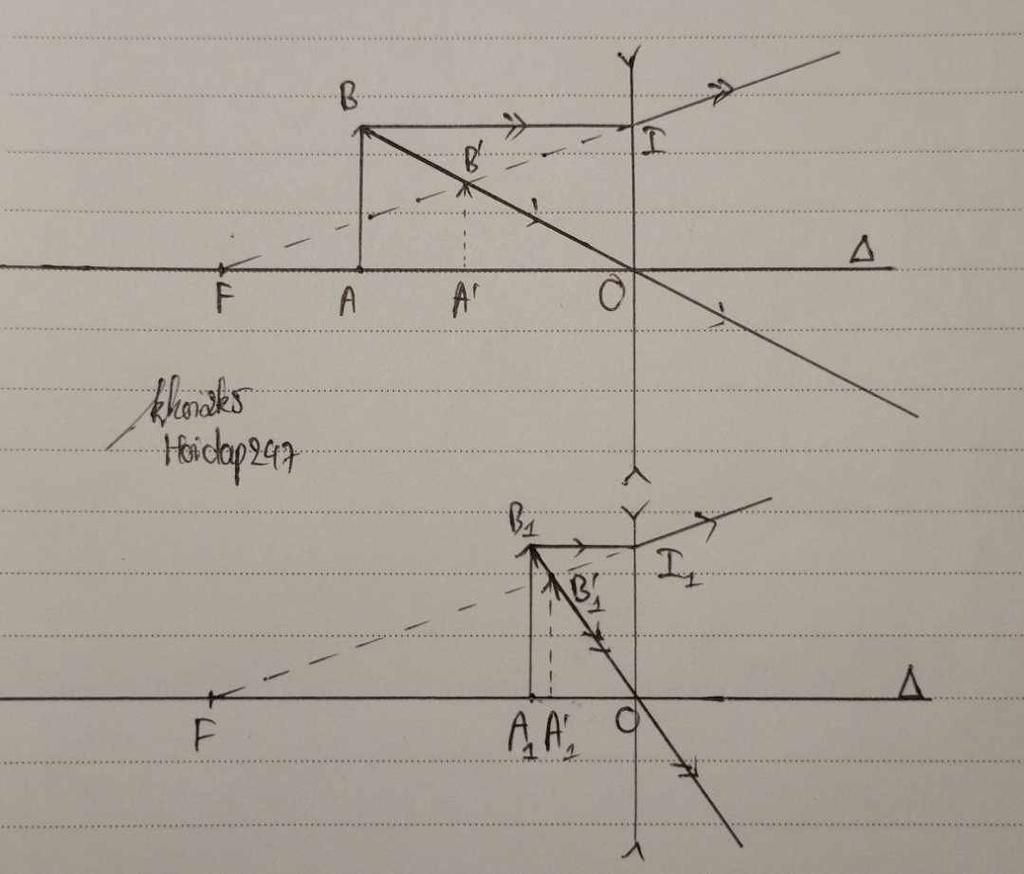 B
B'
I
Δ
F A A' O
Hoidap247
B₁
I₁
B'₁
Δ
F A₁ A'₁ O